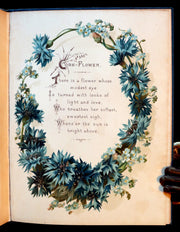 The
Corn-Flower.
There is a flower whose
modest eye
Is turned with looks of
light and love,
Who breathes her softest,
sweetest sigh,
Whene'er the sun is
bright above.